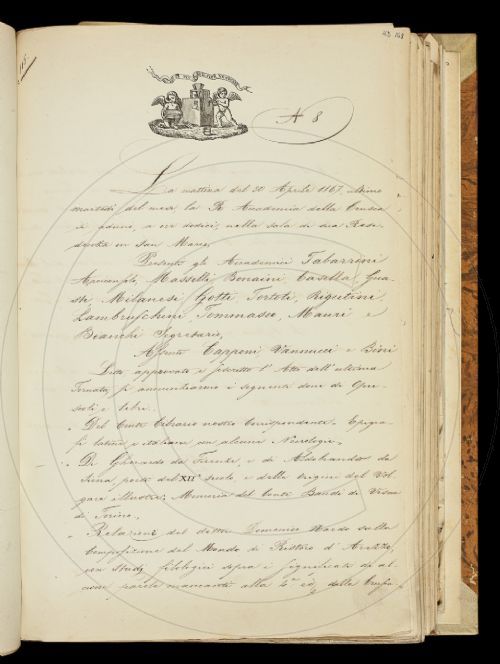 N 8
La mattina del 30 Aprile 1867, ultimo
martedì del mese la R. Accademia della Crusca
si adunò, a ore dodici, nella sala di sua Resi-
denza in San Marco.
Presenti gli Accademici Tabarrini
Arciconsolo, Masselli, Bonaini, Casella, Gua-
sti, Milanesi, Gotti, Tortoli, Rigutini,
Lambruschini, Tommaseo, Mauri e
Bianchi Segretario.
Assenti Capponi, Vannucci e
Letto approvato e firmato l'Atto dell'ultima
Tornata, si annunziarono i seguenti doni di Opu-
scoli e libri.
Del Conte Cibrario nostro Corrispondente. Epigra-
fi latine e italiane con alcune Necrologie.
Di Gherardo da Firenze, e di Aldobrando da
Siena poeti del XII° secolo e delle origini del Vol-
gare illustre, Memoria del Conte Baudi di Vesme
di Torino.
Relazione del dottor Domenico sulla
Composizione del Mondo di Ristoro d'Arezzo,
con studj filologici sopra i significati di al-
cune parole mancanti alla 4ª ed. della Crusca